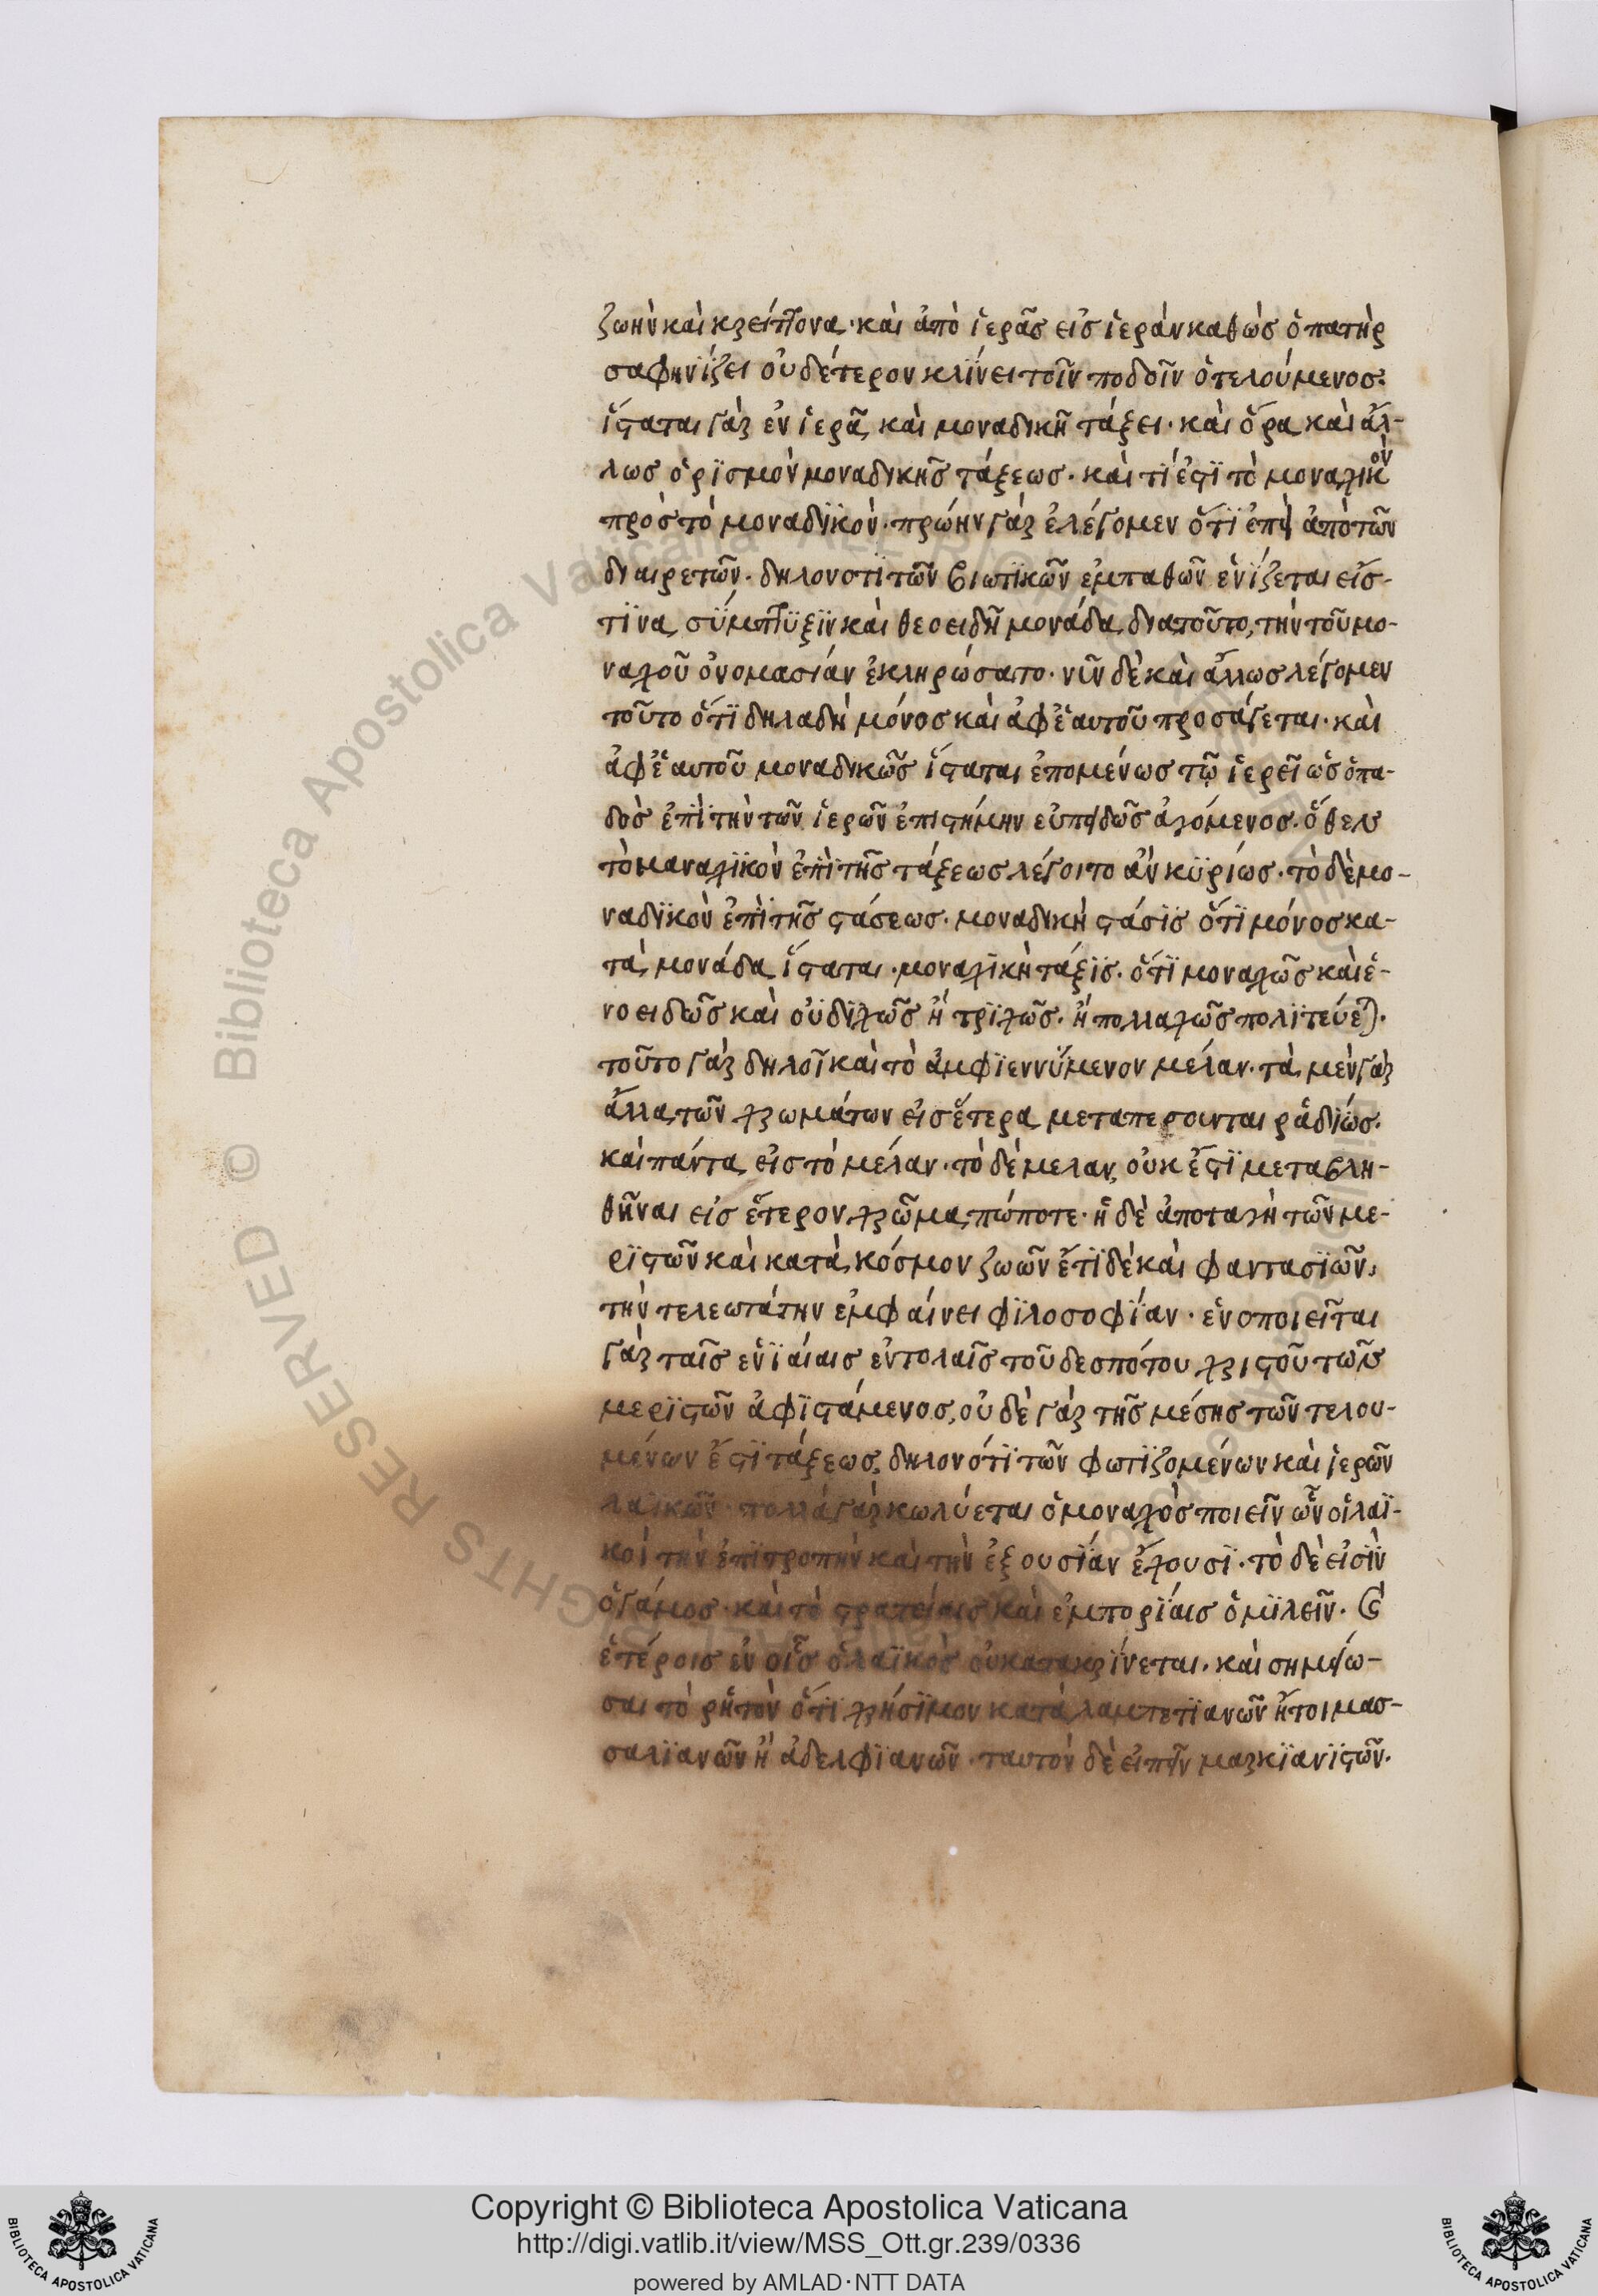 ζωὴν καὶ κρείττονα· καὶ ἀπὸ ἱερᾶς εἰς ἱερὰν καθὼς ὁ πατὴρ
σαφηνίζει οὐδέτερον κλίνει τοῖν ποδοῖν ὁ τελούμενος.
ἵσταται γὰρ ἐν ἱερᾶ καὶ μοναδικῆ τάξει· καὶ ὅρα καὶ ἄλ-
λως ὁρισμὸν μοναδικῆς τάξεως. καὶ τί ἐστὶ τὸ μοναχικὸν
πρὸς τὸ μοναδικὸν· πρώην γὰρ ἐλέγομεν ὅτι ἐπεὶ ἀπὸ τῶν
διαιρετῶν. δηλονότι τῶν βιωτικῶν ἐμπαθῶν ἑνίζεται εἴς-
τινα σύμπτυξιν καὶ θεοειδῆ μονάδα, διατοῦτο, τὴν τοῦ μο-
ναχοῦ ὀνομασίαν ἐκληρώσατο· νῦν δὲ καὶ ἄλλως λέγομεν
τοῦτο ὅτι δηλαδὴ μόνος καὶ ἀφ ἑαυτοῦ προσάγεται· καὶ
ἀφ ἑαυτοῦ μοναδικῶς ἵσταται ἑπομένως τῷ ἱερεῖ ὡς ὀπα-
δὸς ἐπὶ τὴν τῶν ἱερῶν ἐπιστήμην εὐπειθῶς ἀγόμενος. ὅθεν
τὸ μαναχικὸν ἐπὶ τῆς τάξεως λέγοιτο ἂν κυρίως· τὸ δὲ μο-
ναδικὸν ἐπὶ τῆς στάσεως· μοναδικὴ στάσις ὅτι μόνος κα-
τὰ μονάδα ἵσταται· μοναχικὴ τάξις. ὅτι μοναχῶς καὶ ἑ-
νοειδῶς καὶ οὐ διχῶς ἢ τριχῶς. ἢ πολλαχῶς πολιτεύεται.
τοῦτο γὰρ δηλοῖ καὶ τὸ ἀμφιεννύμενον μέλαν· τὰ μὲν γὰρ
ἄλλα τῶν χρωμάτων εἰς ἕτερα μεταπεσοῦνται ῥαδίως.
καὶ πάντα εἰς τὸ μέλαν· τὸ δὲ μελαν, οὐκ ἔστι μεταβλη-
θῆναι εἰς ἕτερον χρῶμα πώποτε· ἡ δὲ ἀποταγὴ τῶν με-
ριστῶν καὶ κατὰ κόσμον ζωῶν ἔτι δὲ καὶ φαντασιῶν,
τὴν τελεωτάτην ἐμφαίνει φιλοσοφίαν· ἑνοποιεῖται
γὰρ ταῖς ἑνιαίαις ἐντολαῖς τοῦ δεσπότου χριστοῦ τῶν
μεριστῶν ἀφιστάμενος, οὐδὲ γὰρ τῆς μέσης τῶν τελου-
μένων ἐστὶ τάξεως, δηλονότι τῶν φωτιζομένων καὶ ἱερῶν
λαϊκῶν· πολλὰ γὰρ κωλύεται ὁ μοναχὸς ποιεῖν ὧν οἱ λαϊ-
κοὶ τὴν ἐπιτροπὴν καὶ τὴν ἐξουσίαν ἔχουσι· τὸ δὲ εἰσὶν
ὁ γάμος· καὶ τὸ στρατείαις καὶ ἐμπορίαις ὁμιλεῖν. καὶ
ἑτέροις ἐν οἷς ὁ λαϊκὸς οὐ κατακρίνεται. καὶ σημείω-
σαι τὸ ῥητὸν ὅτι χρήσιμον κατὰ λαμπετιανῶν ἤτοι μασ-
σαλιανῶν ἢ ἀδελφιανῶν· ταυτὸν δὲ εἰπεῖν μαρκιανιστῶν.
Copyright © Biblioteca Apostolica Vaticana
http://digi.vatlib.it/view/MSS_Ott.gr.239/0336
powered by AMLAD·NTT DATA